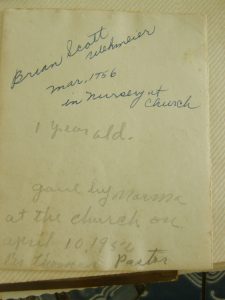 Brian Scott
Wehmeier
Mar, 1956
in Nursery at
church
1 year old.
gave by Norma
at the church on
april 10, 19
Pastor